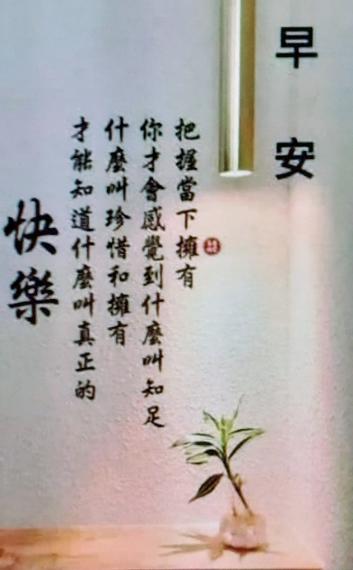 早安
把握當下擁有
你才會感覺到什麼叫知足
什麼叫珍惜和擁有
才能知道什麼叫真正的
快樂